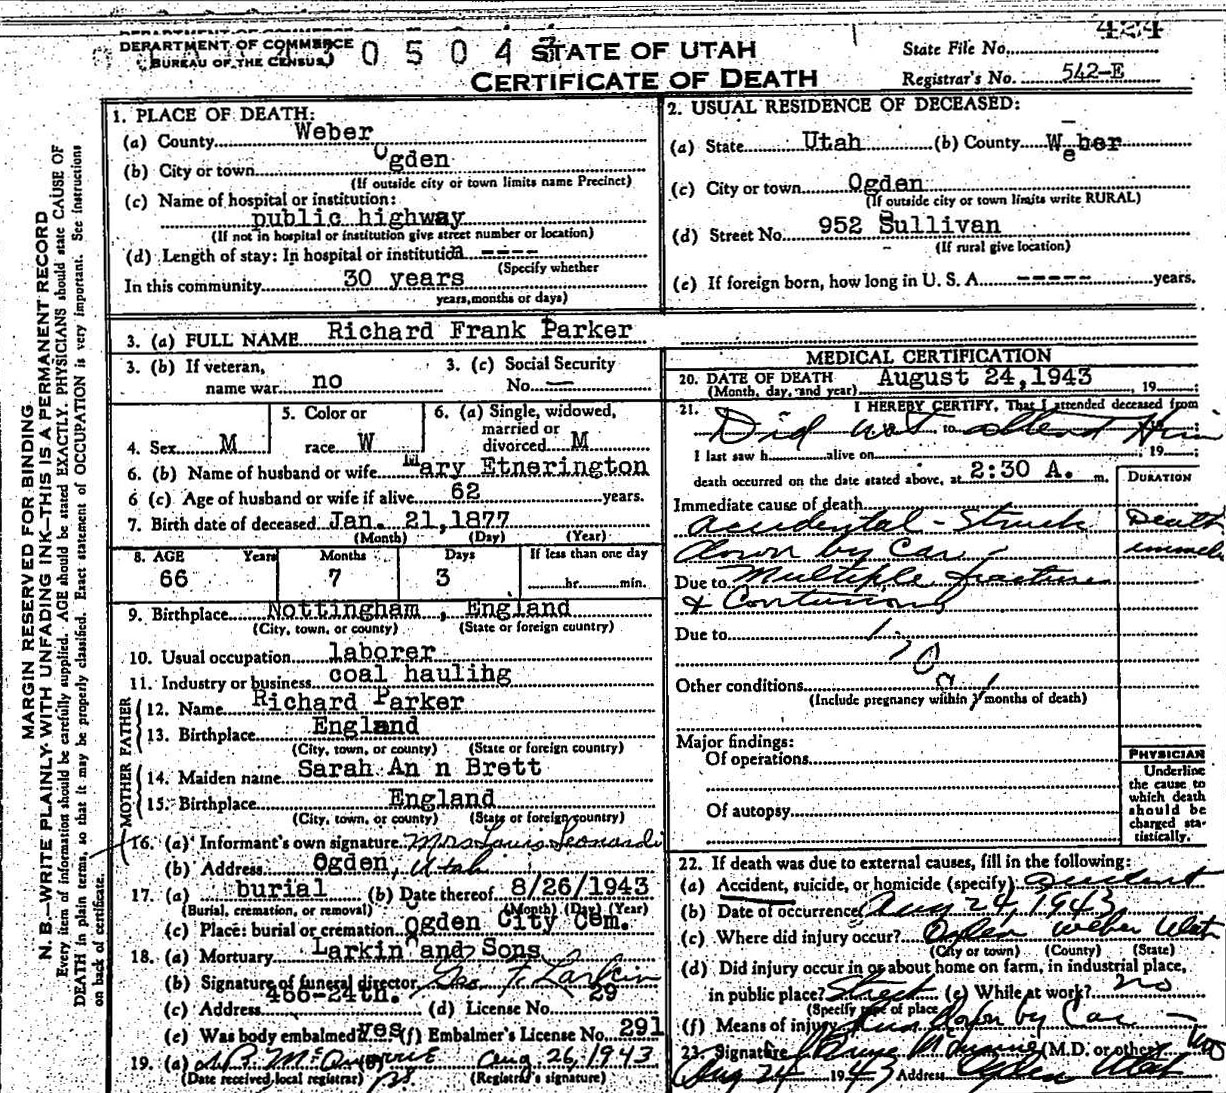 DEPARTMENT OF COMMERCE
BUREAU OF THE CENSUS
0 5 0 4
STATE OF UTAH
CERTIFICATE OF DEATH
State File No. 424
Registrar's No. 542-E
MARGIN RESERVED FOR BINDING
N. B.—WRITE PLAINLY WITH UNFADING INK—THIS IS A PERMANENT RECORD
Every item of information should be carefully supplied. AGE should be stated EXACTLY. PHYSICIANS should state CAUSE OF
DEATH in plain terms, so that it may be properly classified. Exact statement of OCCUPATION is very important. See instructions
on back of certificate.
1. PLACE OF DEATH:
(a) County Weber
(b) City or town Ogden
(If outside city or town limits name Precinct)
(c) Name of hospital or institution:
public highway
(If not in hospital or institution give street number or location)
(d) Length of stay: In hospital or institution ----
(Specify whether
In this community 30 years
years, months or days)
2. USUAL RESIDENCE OF DECEASED:
(a) State Utah (b) County Weber
(c) City or town Ogden
(If outside city or town limits write RURAL)
(d) Street No. 952 Sullivan
(If rural give location)
(e) If foreign born, how long in U. S. A. ----- years.
3. (a) FULL NAME Richard Frank Parker
3. (b) If veteran,
name war no
3. (c) Social Security
No. —
4. Sex M
5. Color or
race W
6. (a) Single, widowed,
married or
divorced M
6. (b) Name of husband or wife Mary Etnerington
6 (c) Age of husband or wife if alive 62 years.
7. Birth date of deceased Jan. 21,1877
(Month) (Day) (Year)
8. AGE Years Months Days If less than one day
66 7 3 hr. min.
9. Birthplace Nottingham , England
(City, town, or county) (State or foreign country)
10. Usual occupation laborer
11. Industry or business coal haulihg
FATHER
12. Name Richard Parker
13. Birthplace England
(City, town, or county) (State or foreign country)
MOTHER
14. Maiden name Sarah An n Brett
15. Birthplace England
(City, town, or county) (State or foreign country)
16. (a) Informant's own signature Mrs Louis Leonardi
(b) Address Ogden, Utah
17. (a) burial (b) Date thereof 8/26/1943
(Burial, cremation, or removal) (Month) (Day) (Year)
(c) Place: burial or cremation Ogden City Cem.
18. (a) Mortuary Larkin and Sons
(b) Signature of funeral director Geo F Larkin
(c) Address 466-24th. (d) License No. 29
(e) Was body embalmed yes (f) Embalmer's License No. 291
19. (a) Aug. 26, 1943
(Date received local registrar) (Registrar's signature)
MEDICAL CERTIFICATION
20. DATE OF DEATH August 24,1943
(Month, day, and year) , 19 ;
21. I HEREBY CERTIFY, That I attended deceased from
Did not to attend Him
I last saw h alive on , 19 ;
death occurred on the date stated above, at 2:30 A. m.
DURATION
Immediate cause of death
accidental - Struck Death
down by Car -
Due to Multiple fracture
& Contusions
Due to
Other conditions
(Include pregnancy within 3 months of death)
Major findings:
Of operations
Of autopsy
PHYSICIAN
Underline
the cause to
which death
should be
charged sta-
tistically.
22. If death was due to external causes, fill in the following:
(a) Accident, suicide, or homicide (specify) accident
(b) Date of occurrence Aug 24, 1943
(c) Where did injury occur? Ogden Weber Utah
(City or town) (County) (State)
(d) Did injury occur in or about home on farm, in industrial place,
in public place? Street (e) While at work? no
(Specify type of place
(f) Means of injury Run down by Car -
23. Signature (M.D. or other)
Aug 24 1943 Address Ogden Utah